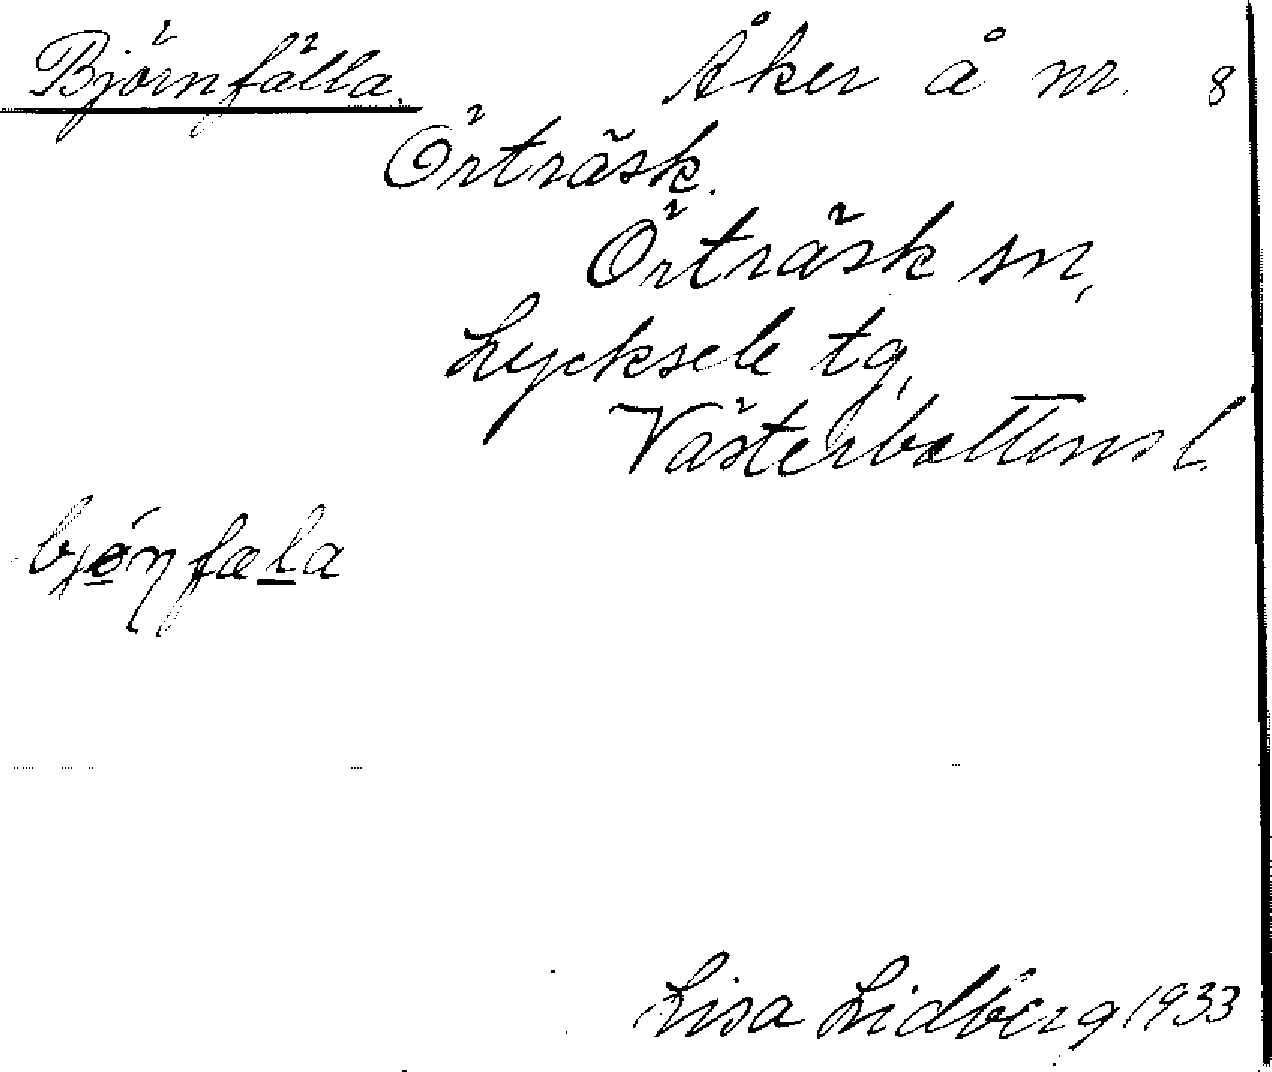 Björnfälla. Åker å nr. 8
Örträsk.
Örträsk sn,
Lycksele tg,
Västerbottens l.
bjǿ̠ɳfæl̠a
Lisa Lidberg 1933